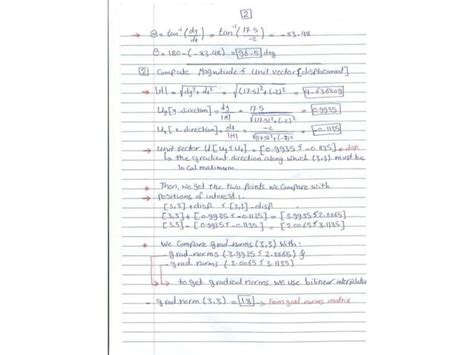 [2]
→ Θ = tan⁻¹(dy/dx) = tan⁻¹(17.5/-2) = -83.48
Θ = 180 - (-83.48) = 96.5 deg
[2] Compute Magnitude & Unit vector [displacement]
|d| = √dy² + dx² = √(17.5)² + (-2)² =
Uy [y-direction] = dy/|d| = 17.5/√(17.5)² + (-2)² = 0.9935
Ux [x-direction] = dx/|d| = -2/√(17.5)² + (-2)² = -0.1135
→ Unit vector U[Uy & Ux] = [0.9935 & -0.1135] → disp
↳ the gradient direction along which (3,3) must be
local maximum.
→ Then, we get the two points we compare with
→ positions of interest:
[3,3] + disp & [3,3] - disp
[3,3] + [0.9935 & -0.1135] = [3.9935 & 2.8865]
[3,3] - [0.9935 & -0.1135] = [2.0065 & 3.1135]
→ We compare grad-norms (3,3) with:
grad-norms (3.9935 & 2.8865) &
grad-norms (2.0065 & 3.1135)
→ to get gradient norms we use bilinear interpolation
- grad norm (3,3) = 18 → From grad norms matrix